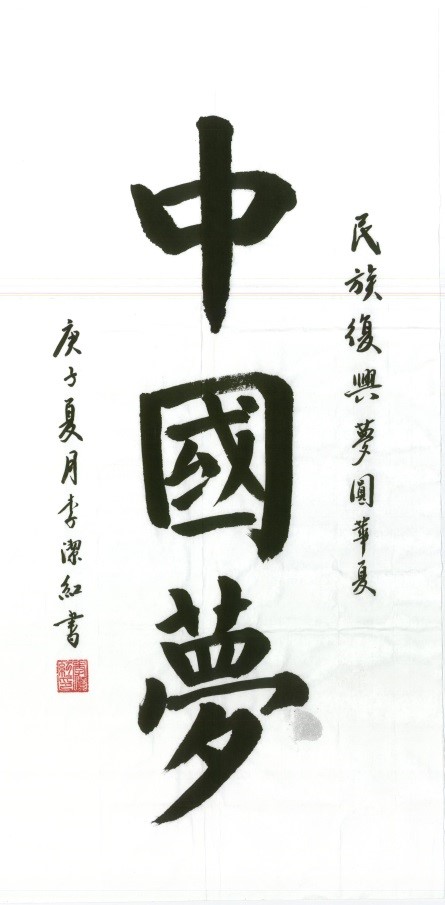 民族復興夢圓華夏
中國夢
庚子夏月李潔紅書